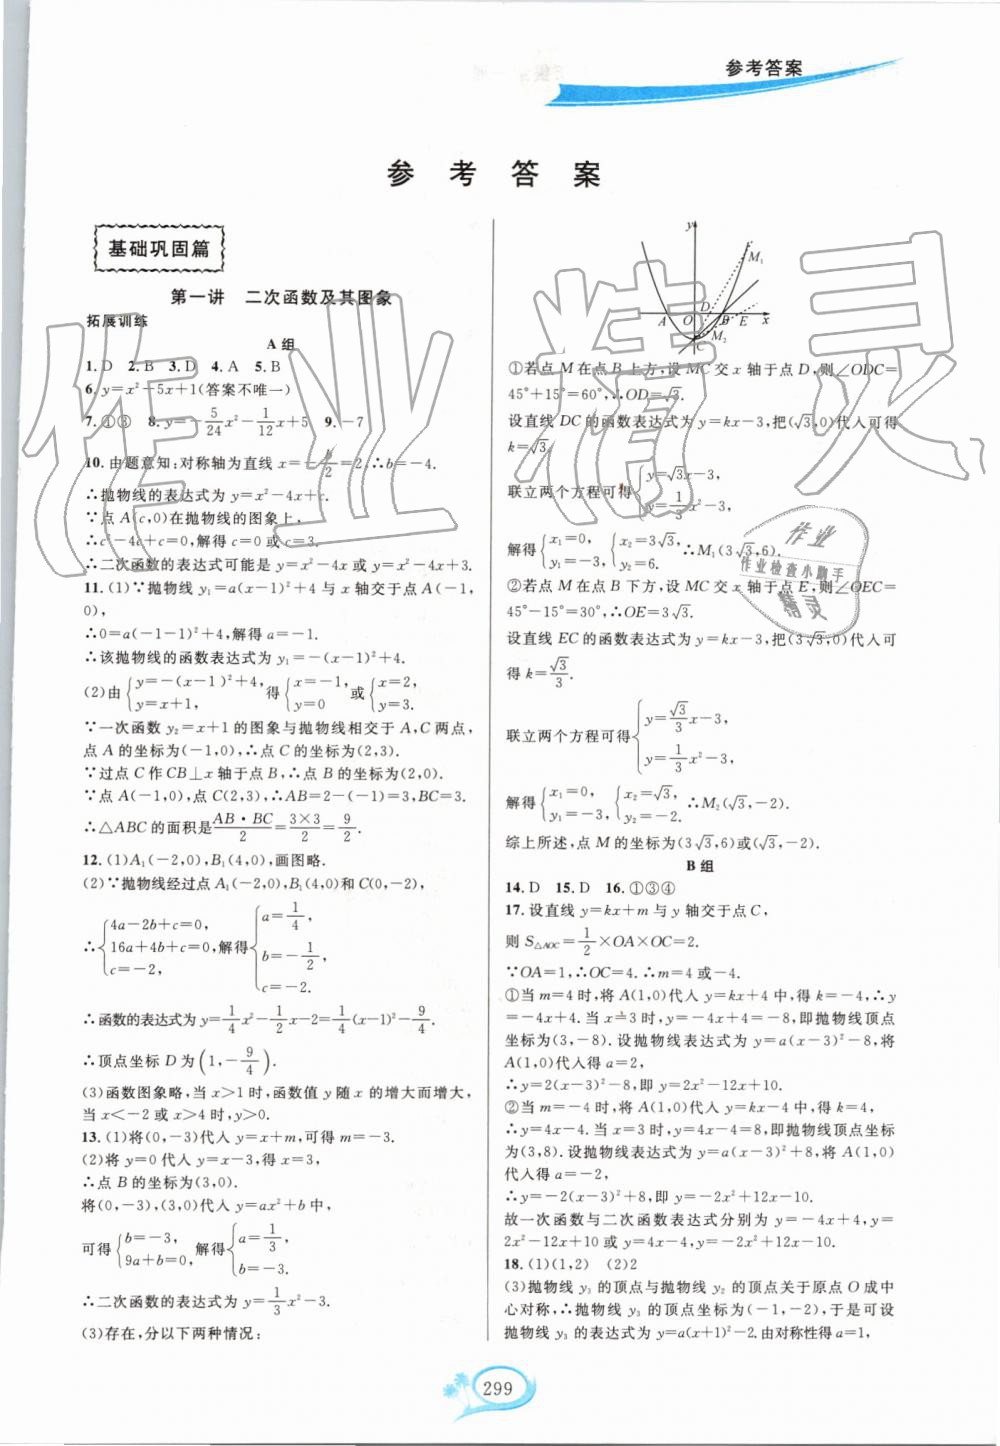 参考答案
参 考 答 案
基础巩固篇
第一讲 二次函数及其图象
拓展训练
A 组
1. D 2. B 3. D 4. A 5. B
6. y=x²-5x+1(答案不唯一)
7. ①③ 8. y=-5/24x²-1/12x+5 9. -7
10. 由题意知:对称轴为直线 x=-b/2=2,∴b=-4.
∴抛物线的表达式为 y=x²-4x+c.
∵点 A(c,0)在抛物线的图象上,
∴c²-4c+c=0,解得 c=0 或 c=3.
∴二次函数的表达式可能是 y=x²-4x 或 y=x²-4x+3.
11. (1)∵抛物线 y₁=a(x-1)²+4 与 x 轴交于点 A(-1,
0),
∴0=a(-1-1)²+4,解得 a=-1.
∴该抛物线的函数表达式为 y₁=-(x-1)²+4.
(2)由{y=-(x-1)²+4, y=x+1, 得{x=-1, y=0 或{x=2, y=3.
∵一次函数 y₂=x+1 的图象与抛物线相交于 A,C 两点,
点 A 的坐标为(-1,0),∴点 C 的坐标为(2,3).
∵过点 C 作 CB⊥x 轴于点 B,∴点 B 的坐标为(2,0).
∵点 A(-1,0),点 C(2,3),∴AB=2-(-1)=3,BC=3.
∴△ABC 的面积是 AB·BC/2=3×3/2=9/2.
12. (1)A₁(-2,0),B₁(4,0),画图略.
(2)∵抛物线经过点 A₁(-2,0),B₁(4,0)和 C(0,-2),
∴{4a-2b+c=0, 16a+4b+c=0, c=-2, 解得{a=1/4, b=-1/2, c=-2.
∴函数的表达式为 y=1/4x²-1/2x-2=1/4(x-1)²-9/4.
∴顶点坐标 D 为(1,-9/4).
(3)函数图象略,当 x>1 时,函数值 y 随 x 的增大而增大,
当 x<-2 或 x>4 时,y>0.
13. (1)将(0,-3)代入 y=x+m,可得 m=-3.
(2)将 y=0 代入 y=x-3,得 x=3.
∴点 B 的坐标为(3,0).
将(0,-3),(3,0)代入 y=ax²+b 中,
可得{b=-3, 9a+b=0, 解得{a=1/3, b=-3.
∴二次函数的表达式为 y=1/3x²-3.
(3)存在,分以下两种情况:
y
M₁
A O D B E x
C M₂
①若点 M 在点 B 上方,设 MC 交 x 轴于点 D,则∠ODC=
45°+15°=60°,∴OD=√3.
设直线 DC 的函数表达式为 y=kx-3,把(√3,0)代入可得
k=√3.
联立两个方程可得{y=√3x-3, y=1/3x²-3,
解得{x₁=0, y₁=-3, {x₂=3√3, y₂=6. ∴M₁(3√3,6).
②若点 M 在点 B 下方,设 MC 交 x 轴于点 E,则∠OEC=
45°-15°=30°,∴OE=3√3.
设直线 EC 的函数表达式为 y=kx-3,把(3√3,0)代入可
得 k=√3/3.
联立两个方程可得{y=√3/3x-3, y=1/3x²-3,
解得{x₁=0, y₁=-3, {x₂=√3, y₂=-2. ∴M₂(√3,-2).
综上所述,点 M 的坐标为(3√3,6)或(√3,-2).
B 组
14. D 15. D 16. ①③④
17. 设直线 y=kx+m 与 y 轴交于点 C,
则 S△AOC=1/2×OA×OC=2.
∵OA=1,∴OC=4. ∴m=4 或-4.
①当 m=4 时,将 A(1,0)代入 y=kx+4 中,得 k=-4,∴y
=-4x+4. 当 x=3 时,y=-4×4+4=-8,即抛物线顶点
坐标为(3,-8). 设抛物线表达式为 y=a(x-3)²-8,将
A(1,0)代入得 a=2,
∴y=2(x-3)²-8,即 y=2x²-12x+10.
②当 m=-4 时,将 A(1,0)代入 y=kx-4 中,得 k=4,
∴y=4x-4. 当 x=3 时,y=4×4-8=8,即抛物线顶点坐标
为(3,8). 设抛物线表达式为 y=a(x-3)²+8,将 A(1,0)
代入得 a=-2,
∴y=-2(x-3)²+8,即 y=-2x²+12x-10.
故一次函数与二次函数表达式分别为 y=-4x+4,y=
2x²-12x+10 或 y=4x-4,y=-2x²+12x-10.
18. (1)(1,2) (2)2
(3)抛物线 y₃ 的顶点与抛物线 y₂ 的顶点关于原点 O 成中
心对称,∴抛物线 y₃ 的顶点坐标为(-1,-2),于是可设
抛物线 y₃ 的表达式为 y=a(x+1)²-2. 由对称性得 a=1,
299
作业精灵
作业
作业检查小助手
精灵